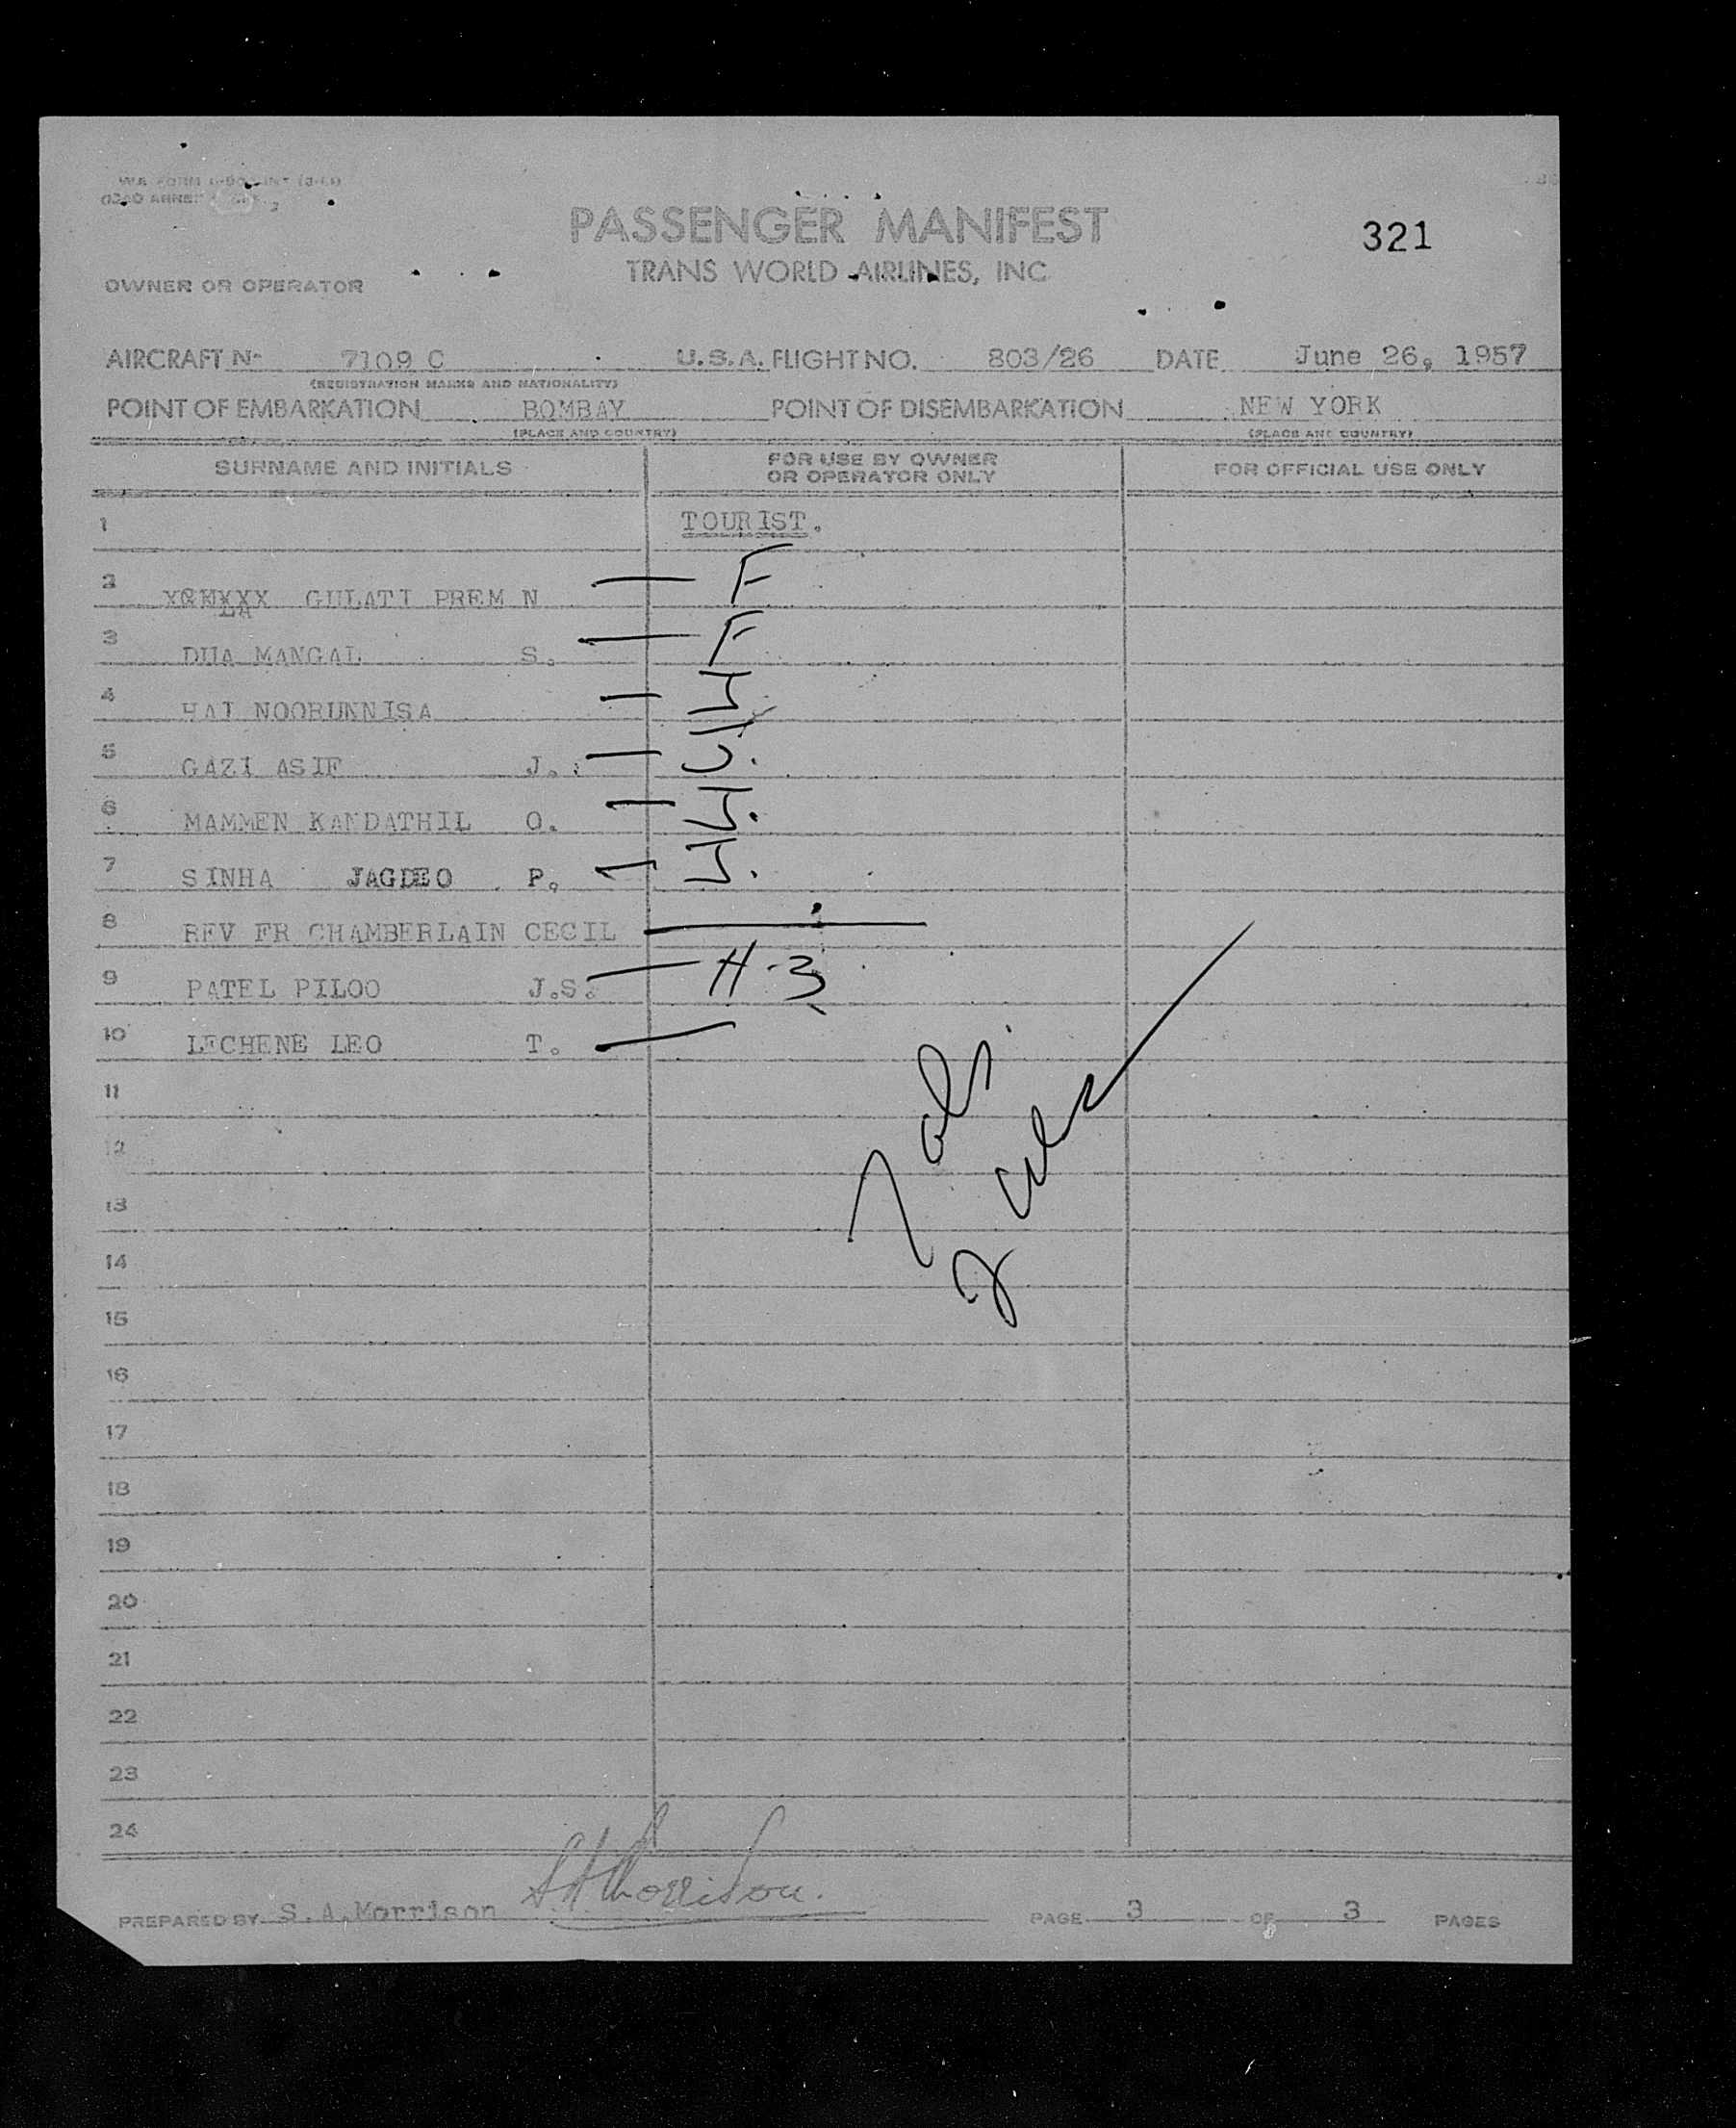 PASSENGER MANIFEST
321
TRANS WORLD AIRLINES, INC
OWNER OR OPERATOR
AIRCRAFT No 7109 C U.S.A. FLIGHT NO. 803/26 DATE June 26, 1957
(REGISTRATION MARKS AND NATIONALITY)
POINT OF EMBARKATION BOMBAY POINT OF DISEMBARKATION NEW YORK
(PLACE AND COUNTRY) (PLACE AND COUNTRY)
SURNAME AND INITIALS FOR USE BY OWNER OR OPERATOR ONLY FOR OFFICIAL USE ONLY
1 TOURIST.
2 GULATI PREM N F
LA
3 DUA MANGAL S. F
4 HAI NOORUNNISA
5 GAZI ASIF J.
6 MAMMEN KANDATHIL O.
7 SINHA JAGDEO P.
8 REV FR CHAMBERLAIN CECIL
9 PATEL PILOO J.S. H-3
10 LECHENE LEO T.
11
12
13
14
15
16
17
18
19
20
21
22
23
24
PREPARED BY S.A.Morrison S.A.Morrison. PAGE 3 OF 3 PAGES